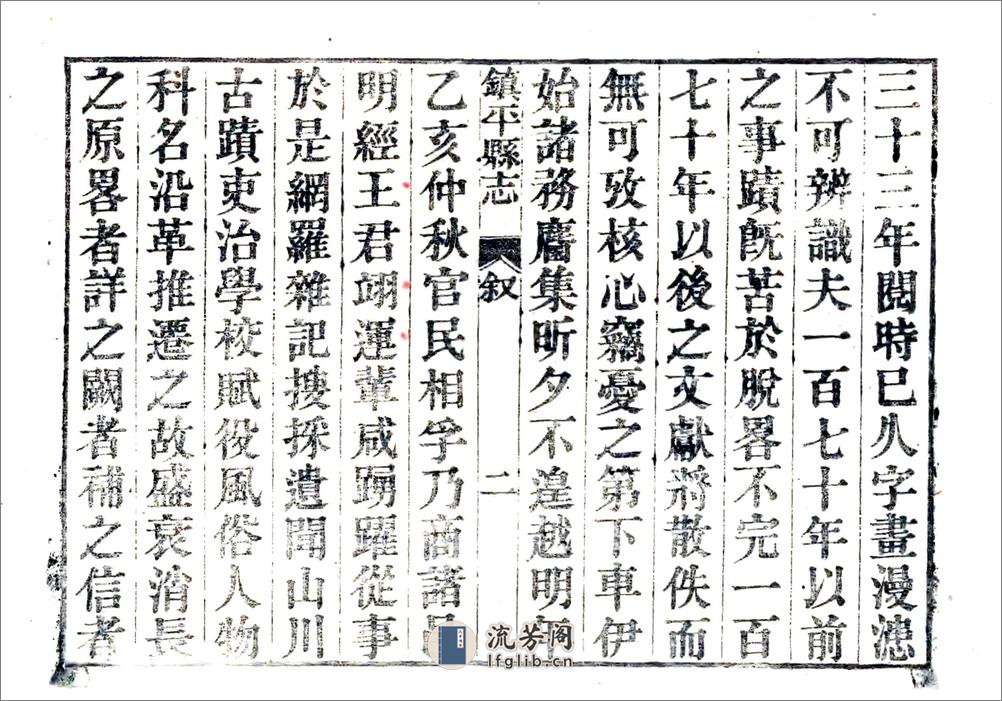 三十三年閱時已久字畫漫漶
不可辨識夫一百七十年以前
之事蹟旣苦於脫畧不完一百
七十年以後之文獻將散佚而
無可攷核心竊憂之第下車伊
始諸務麕集昕夕不遑越明
鎮平縣志 叙 二
乙亥仲秋官民相孚乃商諸
明經王君翊運輩咸踴躍從事
於是網羅雜記搜採遺聞山川
古蹟吏治學校賦役風俗人物
科名沿革推遷之故盛衰消長
之原畧者詳之闕者補之信者
流芳阁
lfglib.cn